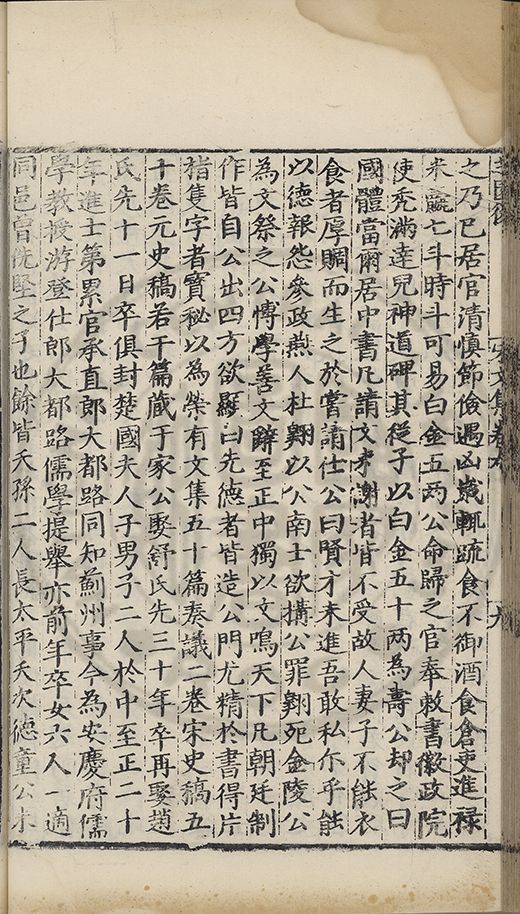 之乃已居官清慎節儉遇凶歲輒疏食不御酒食倉吏進祿
米羸七斗時斗可易白金五两公命歸之官奉敕書徽政院
使禿滿逹兒神道碑其從子以白金五十两為壽公却之曰
國體當爾居中書凡請文来謝者皆不受故人妻子不能衣
食者厚賙而生之於嘗請仕公曰賢才未進吾敢私尒乎能
以德報怨參政燕人杜翱以公南士欲搆公罪翱死金陵公
為文祭之公博學善文辭至正中獨以文鳴天下凡朝廷制
作皆自公出四方欲顯曰先德者皆造公門尤精於書得片
楮隻字者寶秘以為榮有文集五十篇奏議二卷宋史稿五
十卷元史稿若干篇蔵于家公娶舒氏先三十年卒再娶趙
氏先十一日卒俱封楚國夫人子男子二人於中至正二十
年進士第累官承直郎大都路同知薊州事今為安慶府儒
學教授游登仕郎大都路儒學提舉亦前年卒女六人一適
同邑曾
堅之子也餘皆夭孫二人長太平夭次德童公未